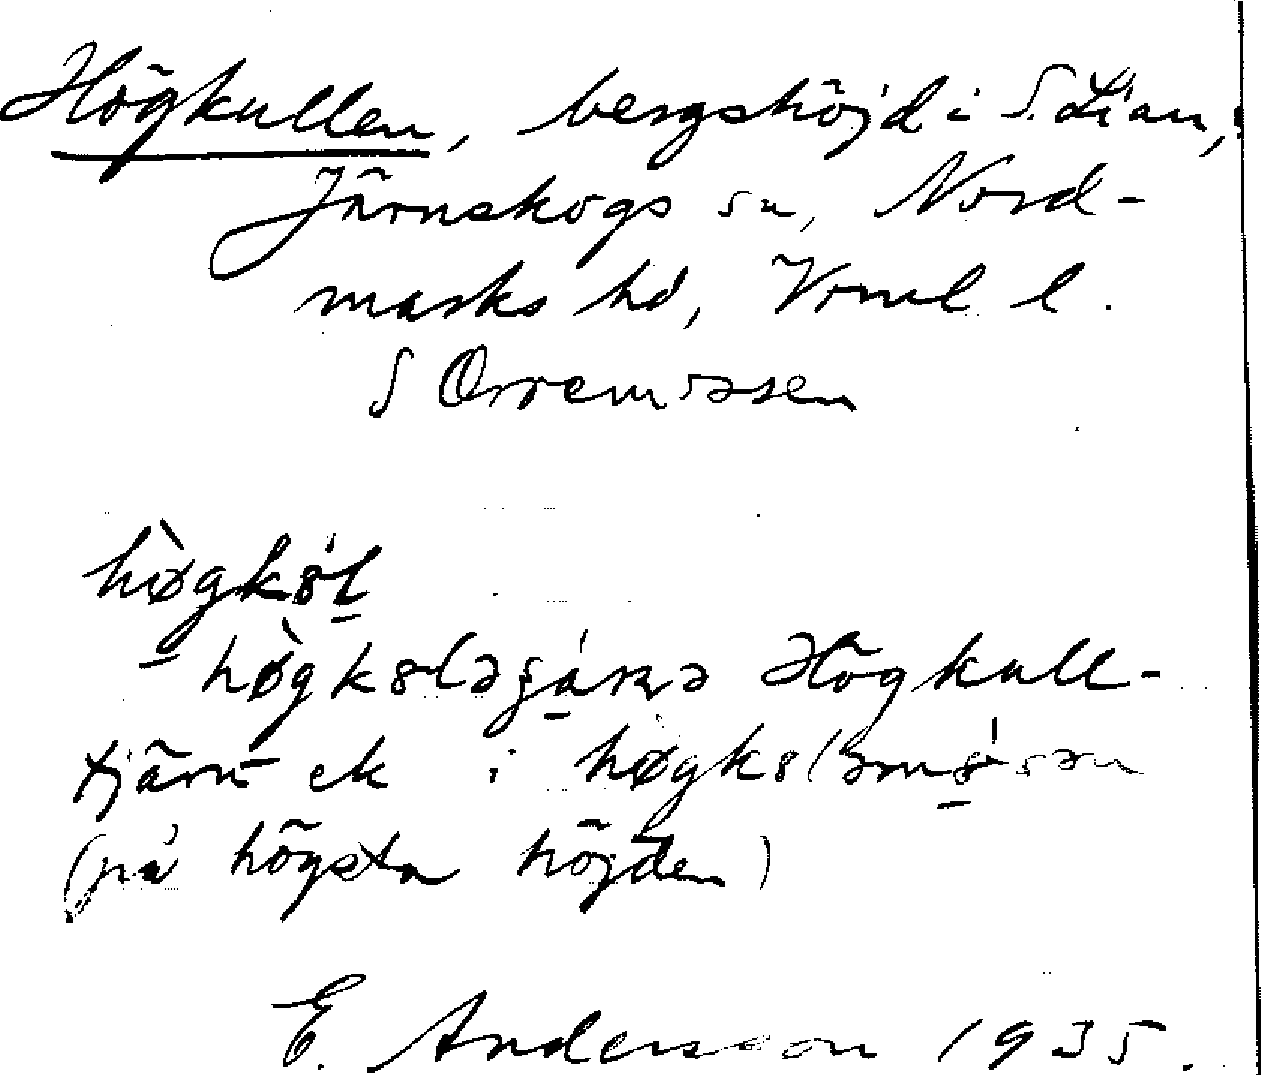 Högkullen, bergshöjd i S. Lian,
Järnskogs sn, Nord-
marks hd, Vrml l.
S Orremossen
hø̀gk8l
hø̀gk8ləʃánə Högkull-
tjärn ek i hø̀gk8ləm8sən
(på högsta höjden)
E. Andersson 1935.